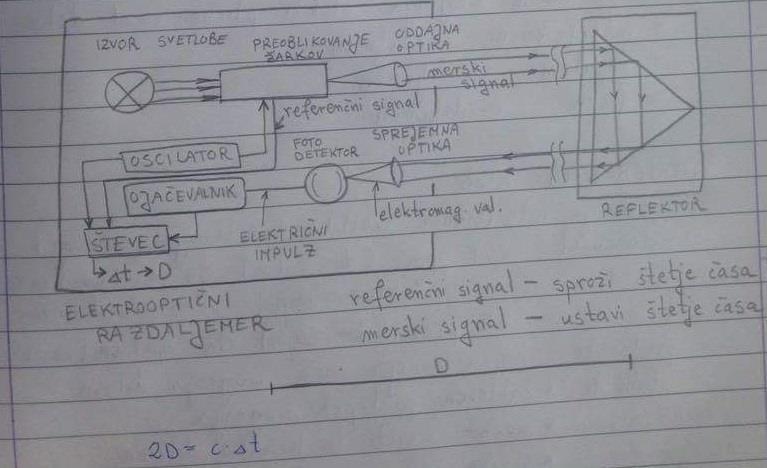 IZVOR SVETLOBE
PREOBLIKOVANJE
ŽARKOV
ODDAJNA
OPTIKA
merski
signal
referenčni signal
OSCILATOR
FOTO
DETEKTOR
SPREJEMNA
OPTIKA
OJAČEVALNIK
elektromag. val.
REFLEKTOR
ŠTEVEC
ELEKTRIČNI
IMPULZ
Δt → D
ELEKTROOPTIČNI
RAZDALJEMER
referenčni signal – sproži štetje časa
merski signal – ustavi štetje časa
D
2D = c·Δt